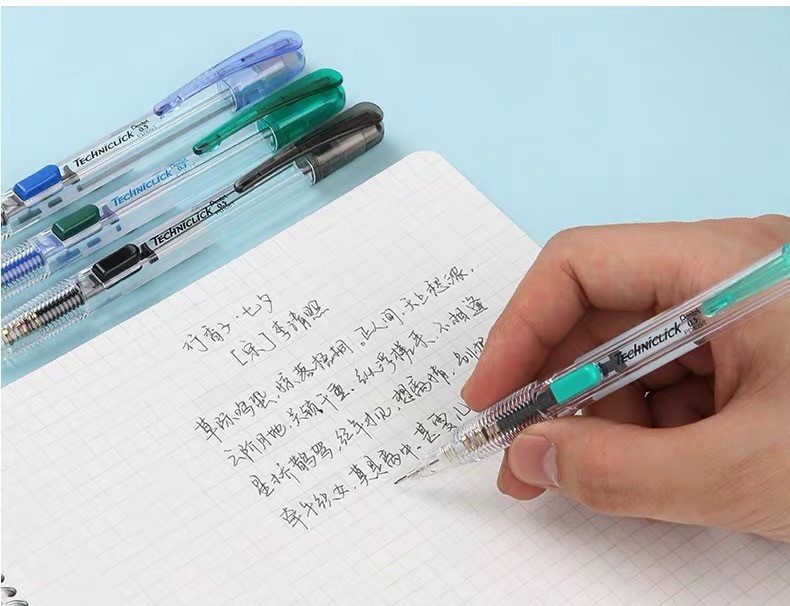 TECHNICLICK Pentel 0.5
TECHNICLICK Pentel 0.5
TECHNICLICK Pentel 0.5
行香子·七夕
[宋]李清照
草际鸣蛩,惊落梧桐。正人间,天上愁浓.
云阶月地,关锁千重.纵浮槎来、不相逢
星桥鹊驾,经年才见,想离情,别恨
牵牛织女,莫是离中.甚霎儿
TECHNICLICK Pentel 0.5